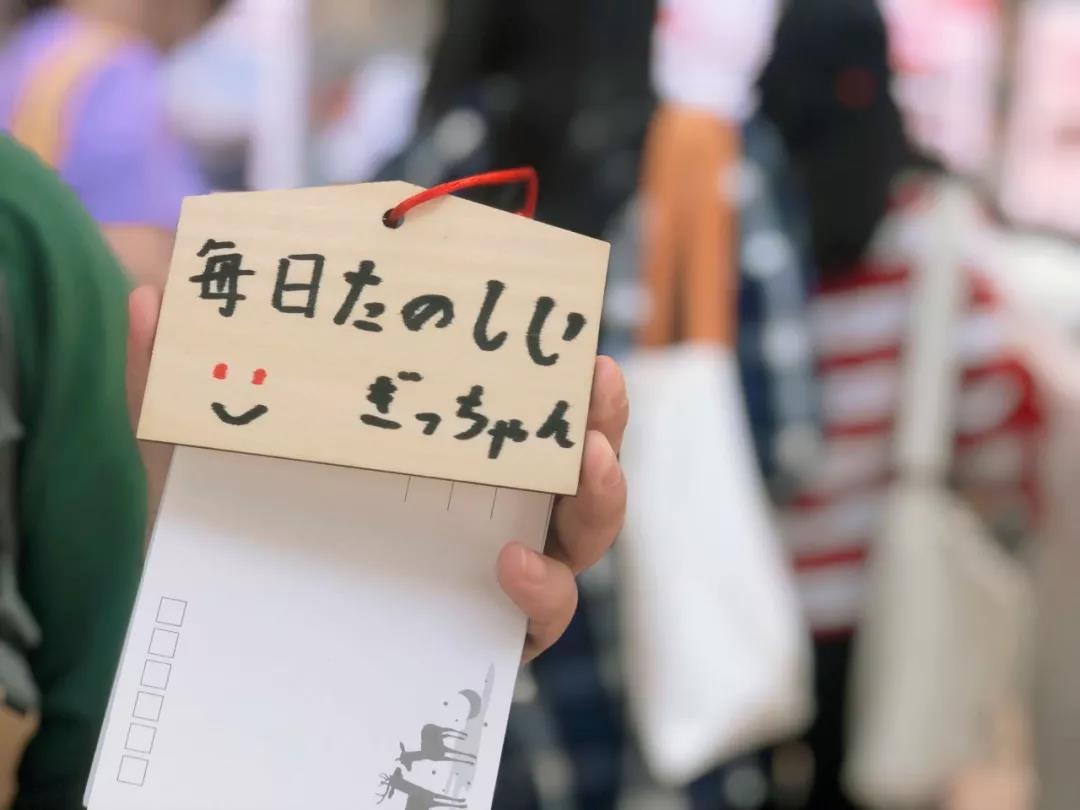 毎日たのしじ
ぎっちゃん